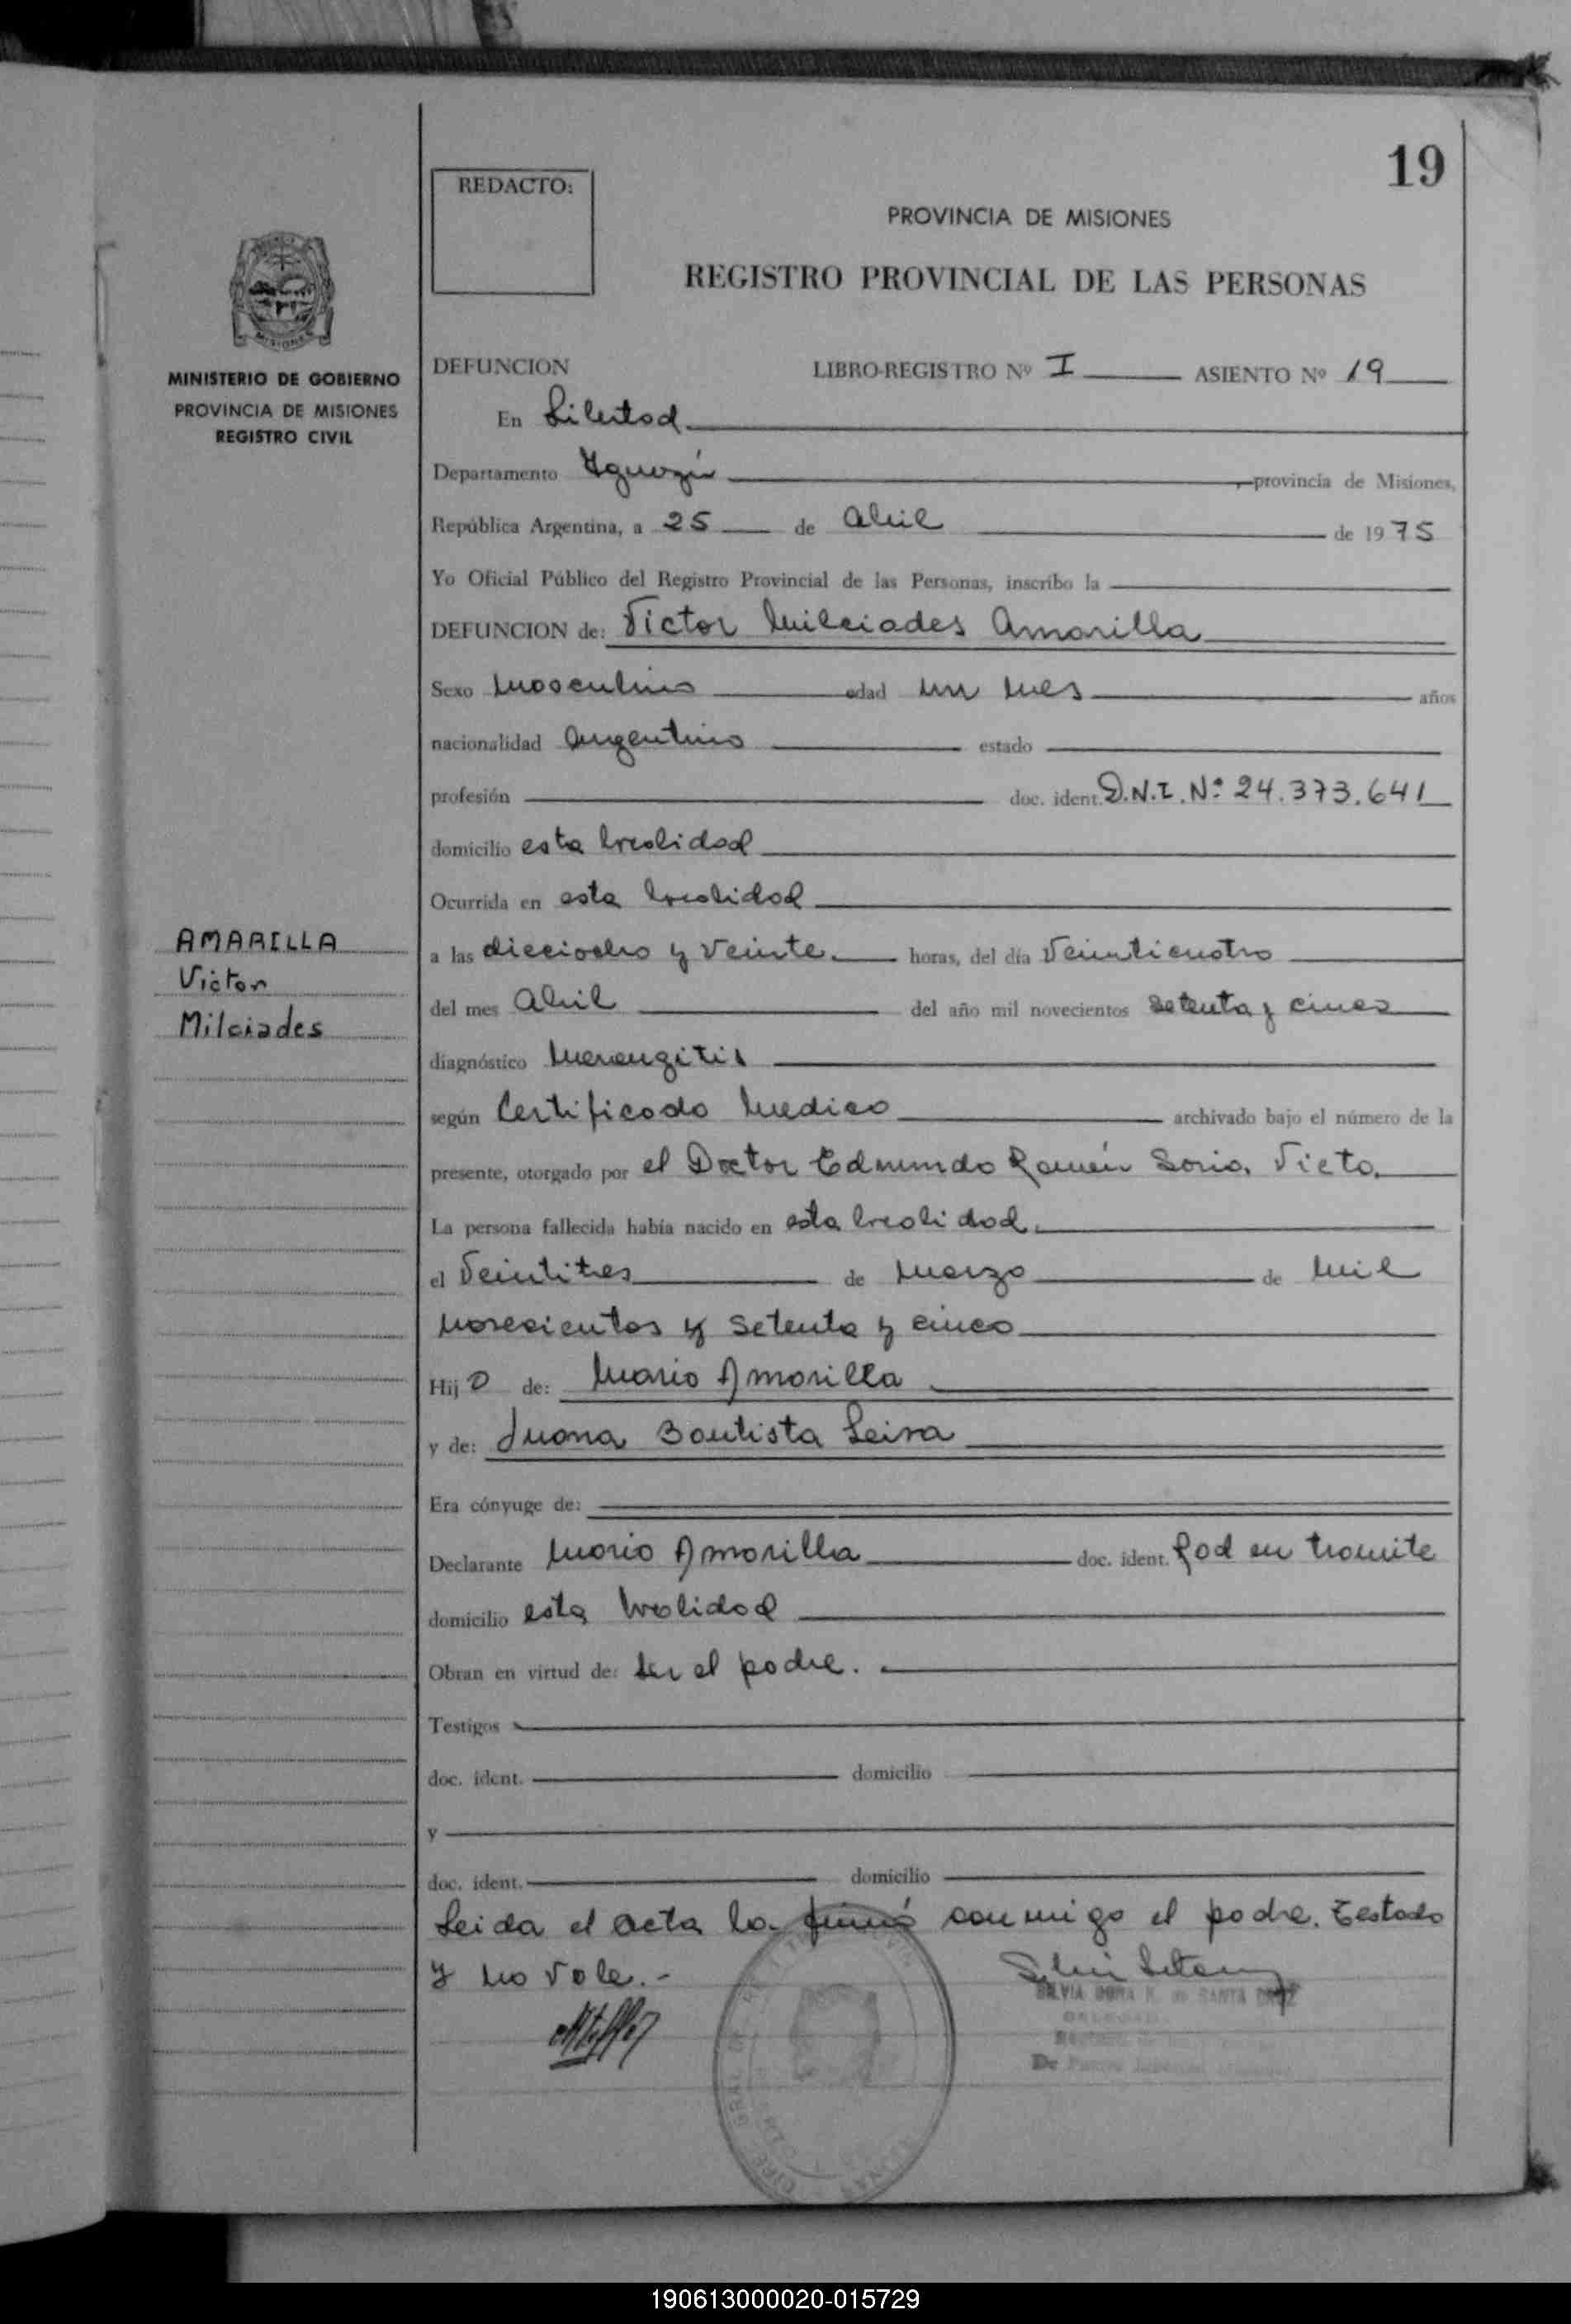 19
REDACTO:
PROVINCIA DE MISIONES
REGISTRO PROVINCIAL DE LAS PERSONAS
MINISTERIO DE GOBIERNO
PROVINCIA DE MISIONES
REGISTRO CIVIL
DEFUNCION LIBRO-REGISTRO Nº I ASIENTO Nº 19
En Libertad
Departamento Iguazú provincia de Misiones,
República Argentina, a 25 de Abril de 1975
Yo Oficial Público del Registro Provincial de las Personas, inscribo la
DEFUNCION de: Victor Milciades Amarilla
Sexo Masculino edad un mes años
nacionalidad Argentino estado
profesión doc. ident. D.N.I. Nº 24.373.641
domicilio esta localidad
Ocurrida en esta localidad
AMARILLA
Victor
Milciades
a las dieciocho y veinte horas, del día Veinticuatro
del mes Abril del año mil novecientos setenta y cinco
diagnóstico
según Certificado Medico archivado bajo el número de la
presente, otorgado por el Doctor Edmundo Ramón Soria Vieta
La persona fallecida había nacido en esta localidad
el Veintitres de Marzo de Mil
novecientos y setenta y cinco
Hijo de: Mario Amarilla
y de: Juana Bautista Leiva
Era cónyuge de:
Declarante Mario Amarilla doc. ident. Rad en tramite
domicilio esta localidad
Obran en virtud de: ser el padre.
Testigos
doc. ident. domicilio
y
doc. ident. domicilio
Leida el acta la firmó conmigo el padre. Testado
y no vale.-
SILVIA DORA K. de SANTA CRUZ
190613000020-015729